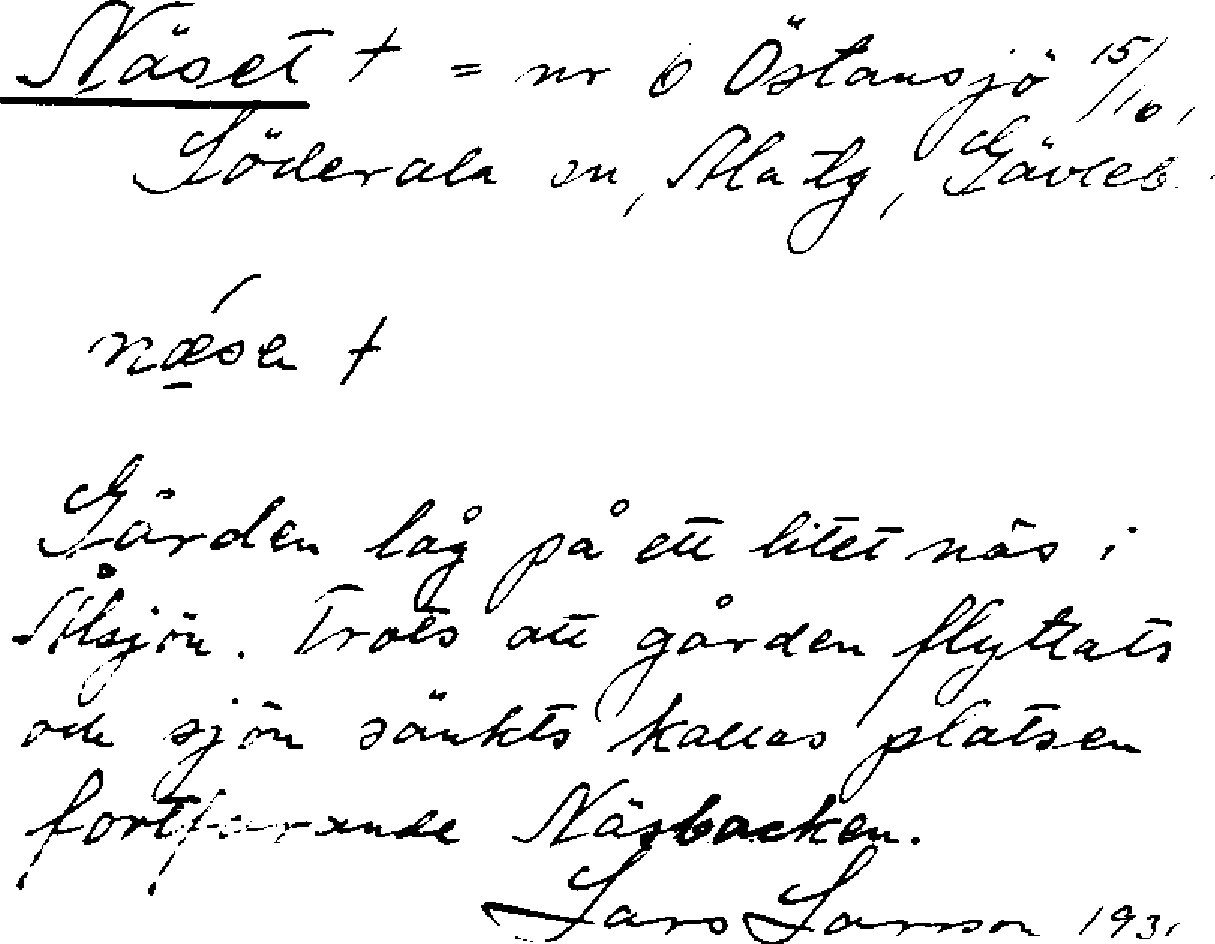 Näset † = nr 6 Östansjö 15/10,
Söderala sn, Ala tg, Gävleb.
nǽ̱sa †
Gården låg på ett litet näs i
Ålsjön. Trots att gården flyttats
och sjön sänkts kallas platsen
fortfarande Näsbacken.
Lars Larsson 1931